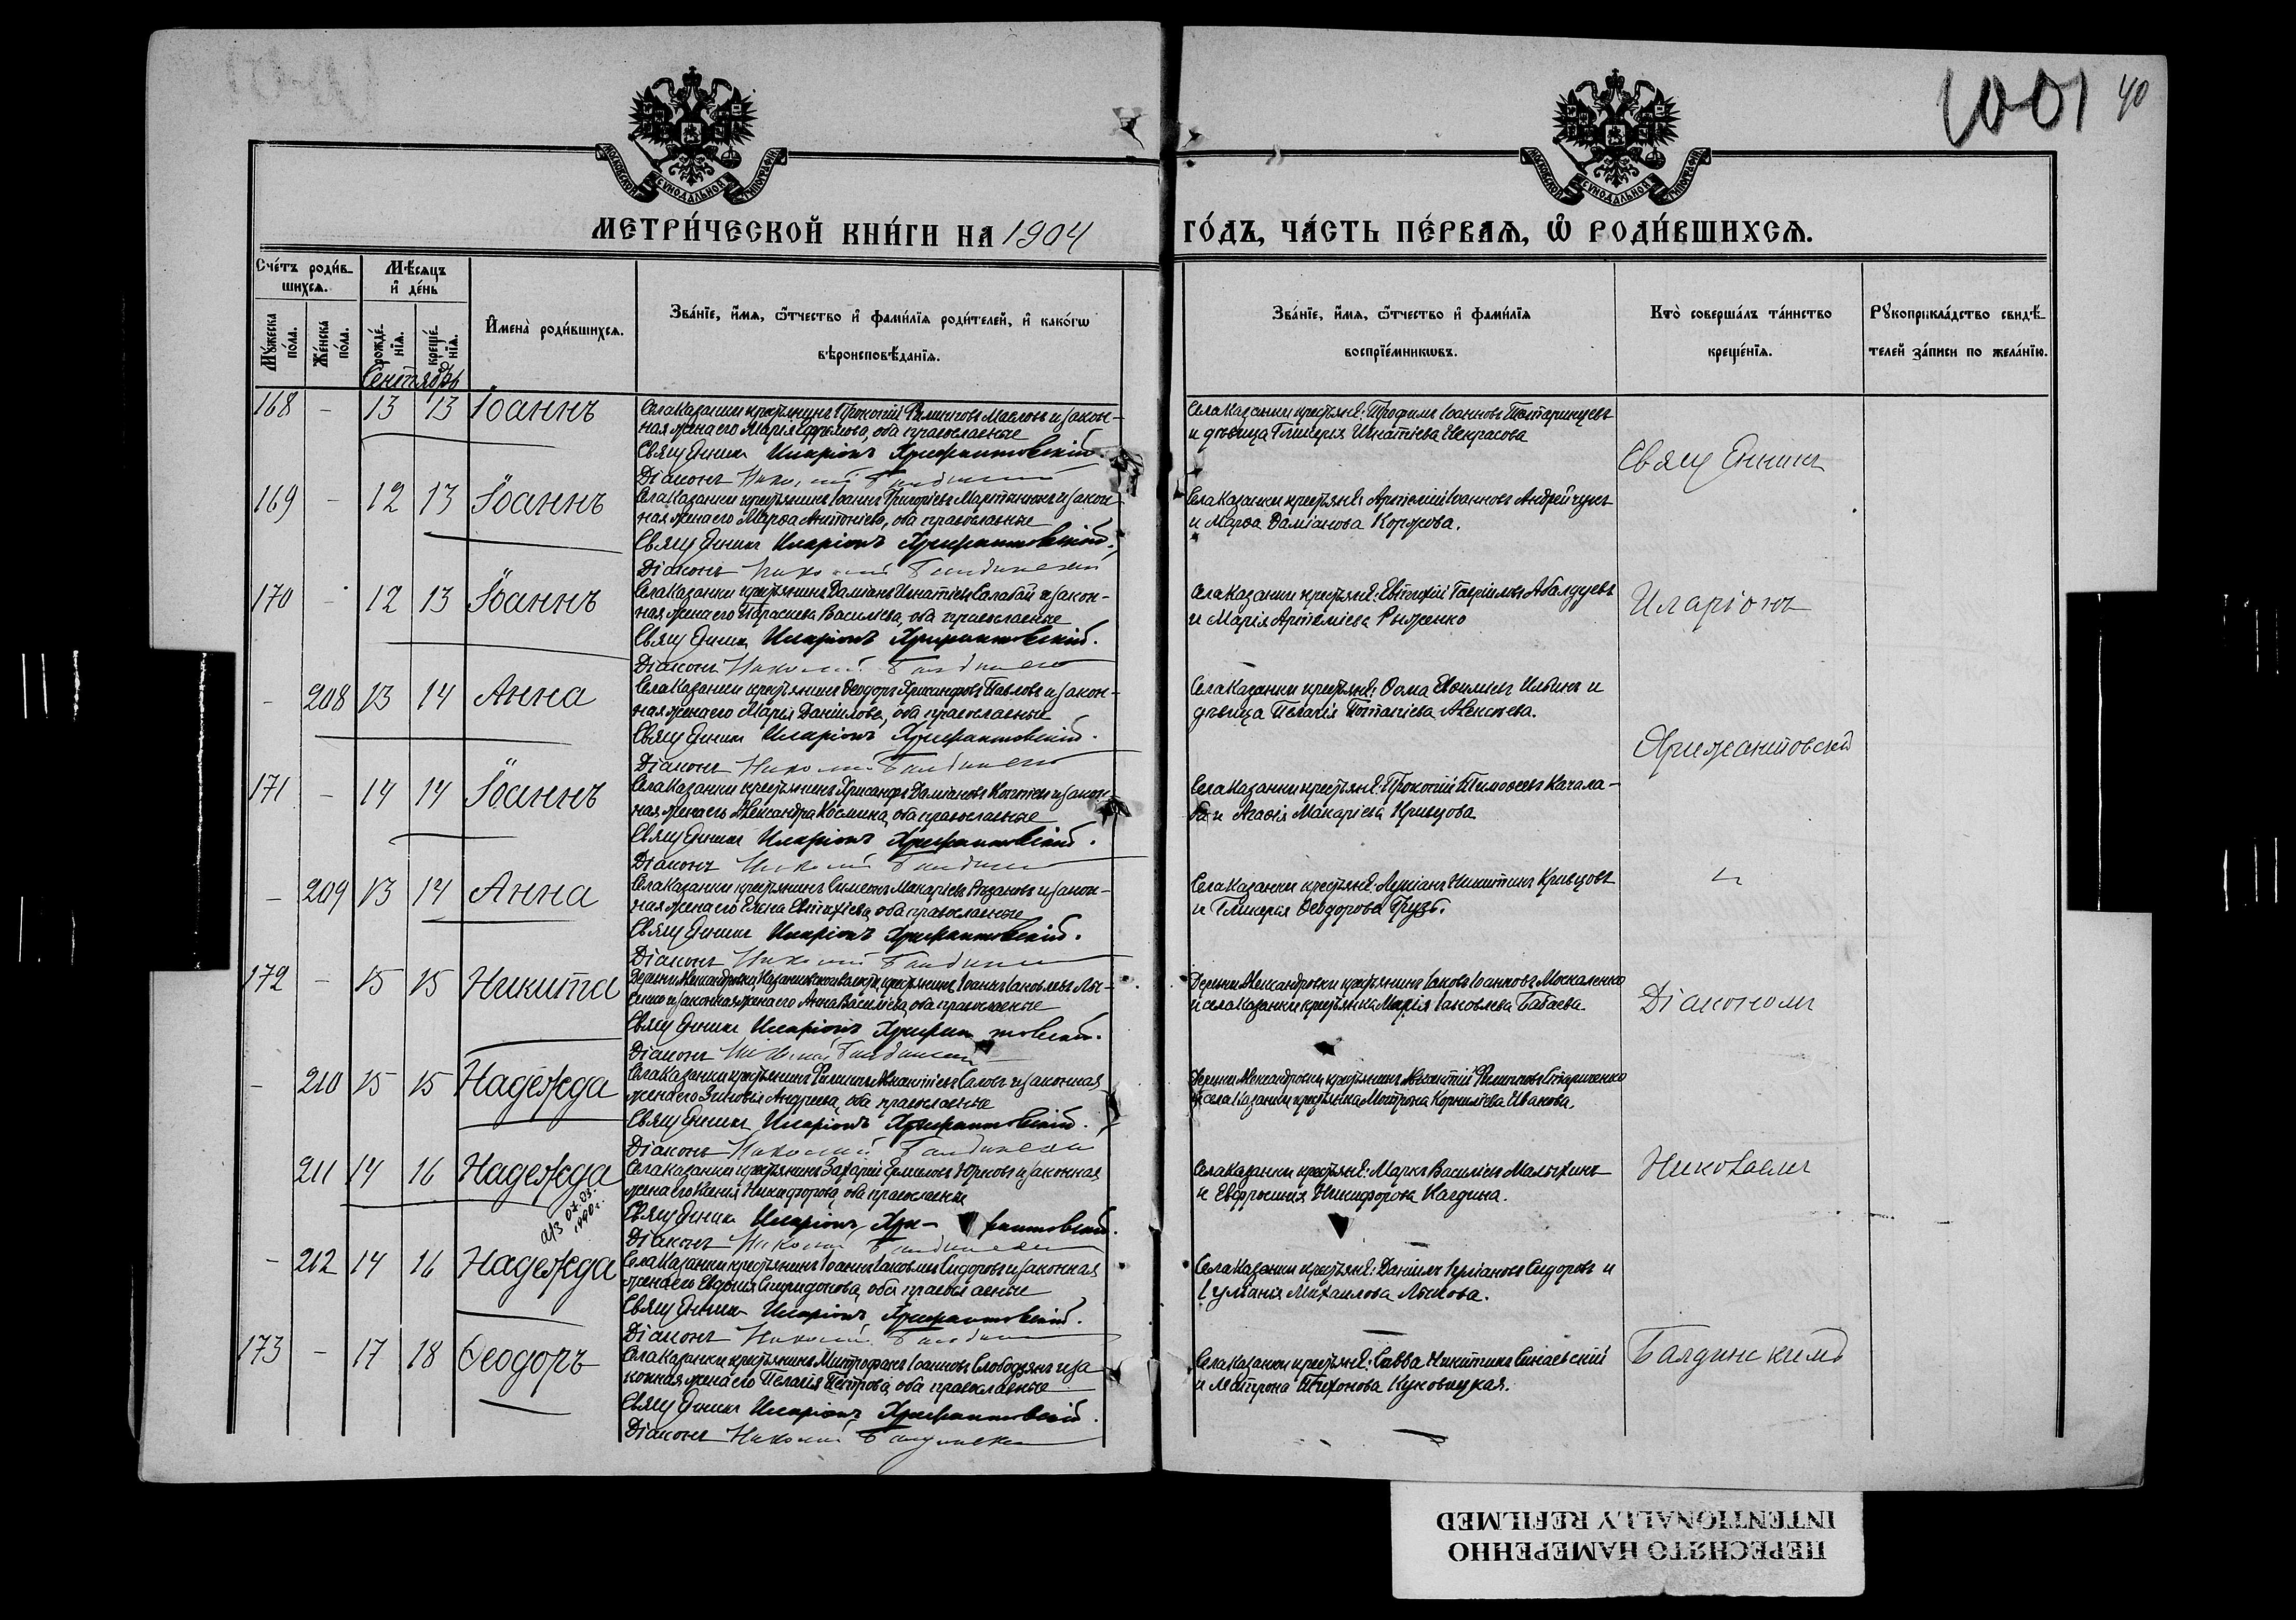 1001 40
МОСКОВСКОЙ СѴНОДАЛЬНОЙ ТИПОГРАФІИ
МОСКОВСКОЙ СѴНОДАЛЬНОЙ ТИПОГРАФІИ
МЕТРИ́ЧЕСКОЙ КНИ́ГИ НА 1904 ГО́ДЪ, ЧА́СТЬ ПЕ́РВАѦ, Ѡ҆ РОДИ́ВШИХСѦ.
Сче́тъ роди́в-
шихсѧ.
Мѣ́сѧцъ
и҆ де́нь
Мꙋ́жеска по́ла.
Же́нска по́ла.
рожде́-нїѧ.
креще́-нїѧ.
Сентябрь
И҆мена̀ роди́вшихсѧ.
Зва́нїе, и҆́мѧ, ѻ҆́тчество и҆ фами́лїѧ роди́телей, и҆ како́гѡ
вѣроисповѣ́данїѧ.
Зва́нїе, и҆́мѧ, ѻ҆́тчество и҆ фами́лїѧ
воспрїе́мникѡвъ.
Кто̀ соверша́лъ та́инство
креще́нїѧ.
Рꙋкоприкла́дство свидѣ́-
телей за́писи по жела́нїю.
168 - 13 13 Іоаннъ
Села Казанки крестьянинъ Прокопій Филиповъ Масловъ и закон-
ная жена его Марія Ефремова, оба православные
Священникъ Иларіонъ Хрисантовскій
Діаконъ Николай Балдинскій
Села Казанки крестьяне: Трофимъ Іоанновъ
и дѣвица Гликерія Игнатіева Некрасова
Священникъ
169 - 12 13 Іоаннъ
Села Казанки крестьянинъ Іоаннъ Григоріевъ Мартынюкъ и закон-
ная жена его Марѳа Антоніева, оба православные
Священникъ Иларіонъ Хрисантовскій.
Діаконъ Николай Балдинскій
Села Казанки крестьяне: Артемій Іоанновъ Андрейчукъ
и Марѳа Даміанова
170 - 12 13 Іоаннъ
Села Казанки крестьянинъ Даміанъ Игнатіевъ Салабай и закон-
ная жена его Параскева Василіева, оба православные
Священникъ Иларіонъ Хрисантовскій.
Діаконъ Николай Балдинскій
Села Казанки крестьяне: Евстафій Гавріиловъ Абалдуевъ
и Марія Артеміева Рыженко
Иларіонъ
- 208 13 14 Анна
Села Казанки крестьянинъ Ѳеодоръ Хрисанфовъ Павловъ и закон-
ная жена его Марія Даніилова, оба православные
Священникъ Иларіонъ Хрисантовскій.
Діаконъ Николай Балдинскій
Села Казанки крестьяне: Ѳома Евѳиміевъ Ильинъ и
дѣвица Пелагія Потапіева Алексѣева.
Хрисантовскій
171 - 14 14 Іоаннъ
Села Казанки крестьянинъ Хрисанфъ Даміановъ и закон-
ная жена его Александра Космина, оба православные
Священникъ Иларіонъ Хрисантовскій.
Діаконъ Николай Балдинскій
Села Казанки крестьяне: Прокопій Тимоѳеевъ Качала-
ба и Агаѳія Макаріева Кривцова
- 209 13 14 Анна
Села Казанки крестьянинъ Симеонъ Макаріевъ Рязановъ и закон-
ная жена его Елена Евстафіева, оба православные
Священникъ Иларіонъ Хрисантовскій.
Діаконъ Николай Балдинскій
Села Казанки крестьяне: Лукіанъ Никитинъ Кривцовъ
и Гликерія Ѳеодорова
съ
172 - 15 15 Никита
Деревни Александровки, Казанковской волости, крестьянинъ Іоаннъ Іаковлевъ Лы-
сенко и законная жена его Анна Василіева, оба православные
Священникъ Иларіонъ Хрисантовскій.
Діаконъ Николай Балдинскій
Деревни Александровки крестьянинъ Іаковъ Іоанновъ Москаленко
и села Казанки крестьянка Марія Іаковлева Бабаева.
Діакономъ
- 210 15 15 Надежда
Села Казанки крестьянинъ Филиппъ Саловъ и законная
жена его Зиновія Андреева, оба православные
Священникъ Иларіонъ Хрисантовскій.
Діаконъ Николай Балдинскій
Деревни Александровки крестьянинъ Филипповъ Стариченко
и села Казанки крестьянка Матрона Корниліева Иванова.
211 14 16 Надежда
а/з 07.03. 1990г.
Села Казанки крестьянинъ Захарій Ермиловъ Юрковъ и законная
жена его Ксенія Никифорова, оба православные
Священникъ Иларіонъ Хри- сантовскій.
Діаконъ Николай Балдинскій
Села Казанки крестьяне: Маркъ Василіевъ Малыхинъ
и Евфросинія Никифорова
Николаемъ
- 212 14 16 Надежда
Села Казанки крестьянинъ Іоаннъ Іаковлевъ Сидоровъ и законная
жена его Евдокія Спиридонова, оба православные
Священникъ Иларіонъ Хрисантовскій.
Діаконъ Николай Балдинскій
Села Казанки крестьяне: Даніилъ Сидоровъ и
Іуліанія Михаилова Лыкова.
173 - 17 18 Ѳеодоръ
Села Казанки крестьянинъ Митрофанъ Іоанновъ Слободянъ и за
конная жена его Пелагія Петрова, оба православные
Священникъ Иларіонъ Хрисантовскій.
Діаконъ Николай Балдинскій
Села Казанки крестьяне: Савва Никитинъ Синаевскій
и Матрона Тихонова Куковицкая.
Балдинскимъ
ПЕРЕСНЯТО НАМЕРЕННО
INTENTIONALLY REFILMED